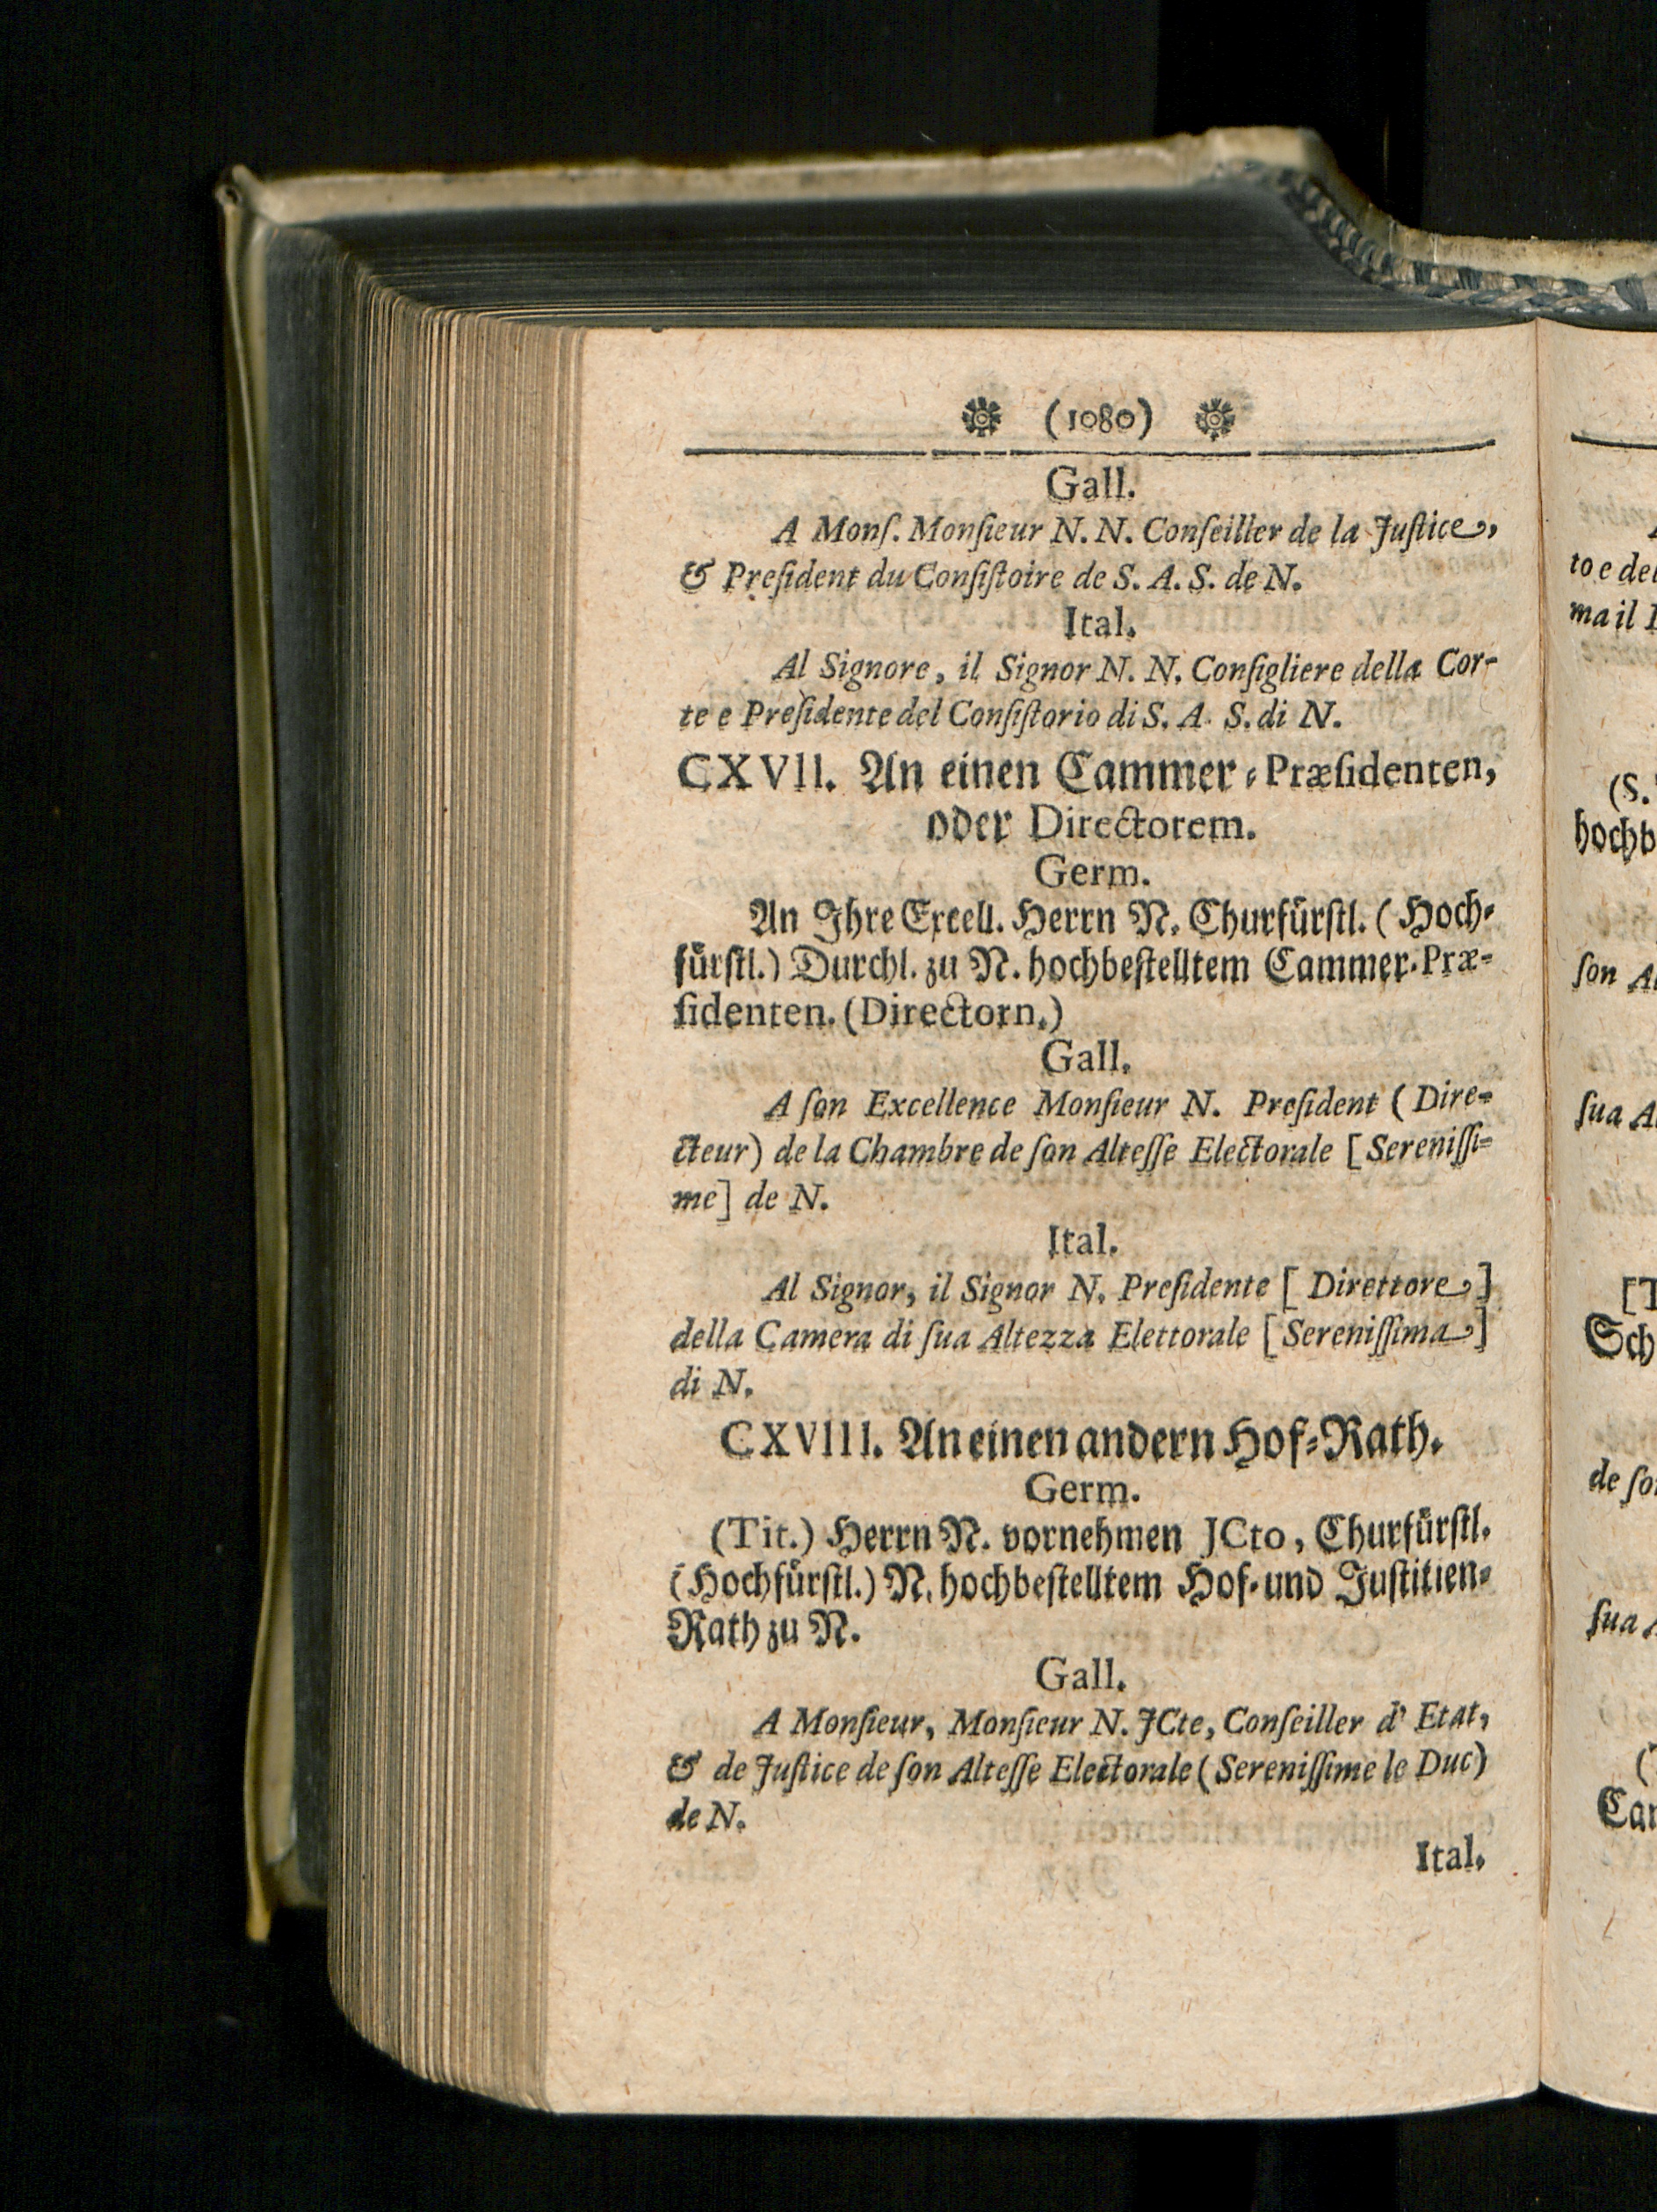 (1080)
Gall.
A Monſ. Monſieur N. N. Conſeiller de la Juſtice,
& Preſident du Conſiſtoire de S. A. S. de N.
Ital.
Al Signore, il Signor N. N. Conſigliere della Cor-
te e Preſidente del Conſiſtorio di S. A. S. di N.
CXVII. An einen Cammer-Præſidenten,
oder Directorem.
Germ.
An Ihre Excell. Herrn N. Churfürſtl. (Hoch-
fürſtl.) Durchl. zu N. hochbeſtelltem Cammer-Præ-
ſidenten. (Directorn.)
Gall.
A ſon Excellence Monſieur N. Preſident (Dire-
cteur) de la Chambre de ſon Alteſſe Electorale [Sereniſſi-
me] de N.
Ital.
Al Signor, il Signor N. Preſidente [Direttore]
della Camera di ſua Altezza Elettorale [Sereniſſima]
di N.
CXVIII. An einen andern Hof-Rath.
Germ.
(Tit.) Herrn N. vornehmen JCto, Churfürſtl.
(Hochfürſtl.) N. hochbeſtelltem Hof- und Juſtitien-
Rath zu N.
Gall.
A Monſieur, Monſieur N. JCte, Conſeiller d' Etat,
& de Juſtice de ſon Alteſſe Electorale (Sereniſſime le Duc)
de N.
Ital.
to e del
ma il
(S.
hochb
ſon
ſua
Sch
de
ſua